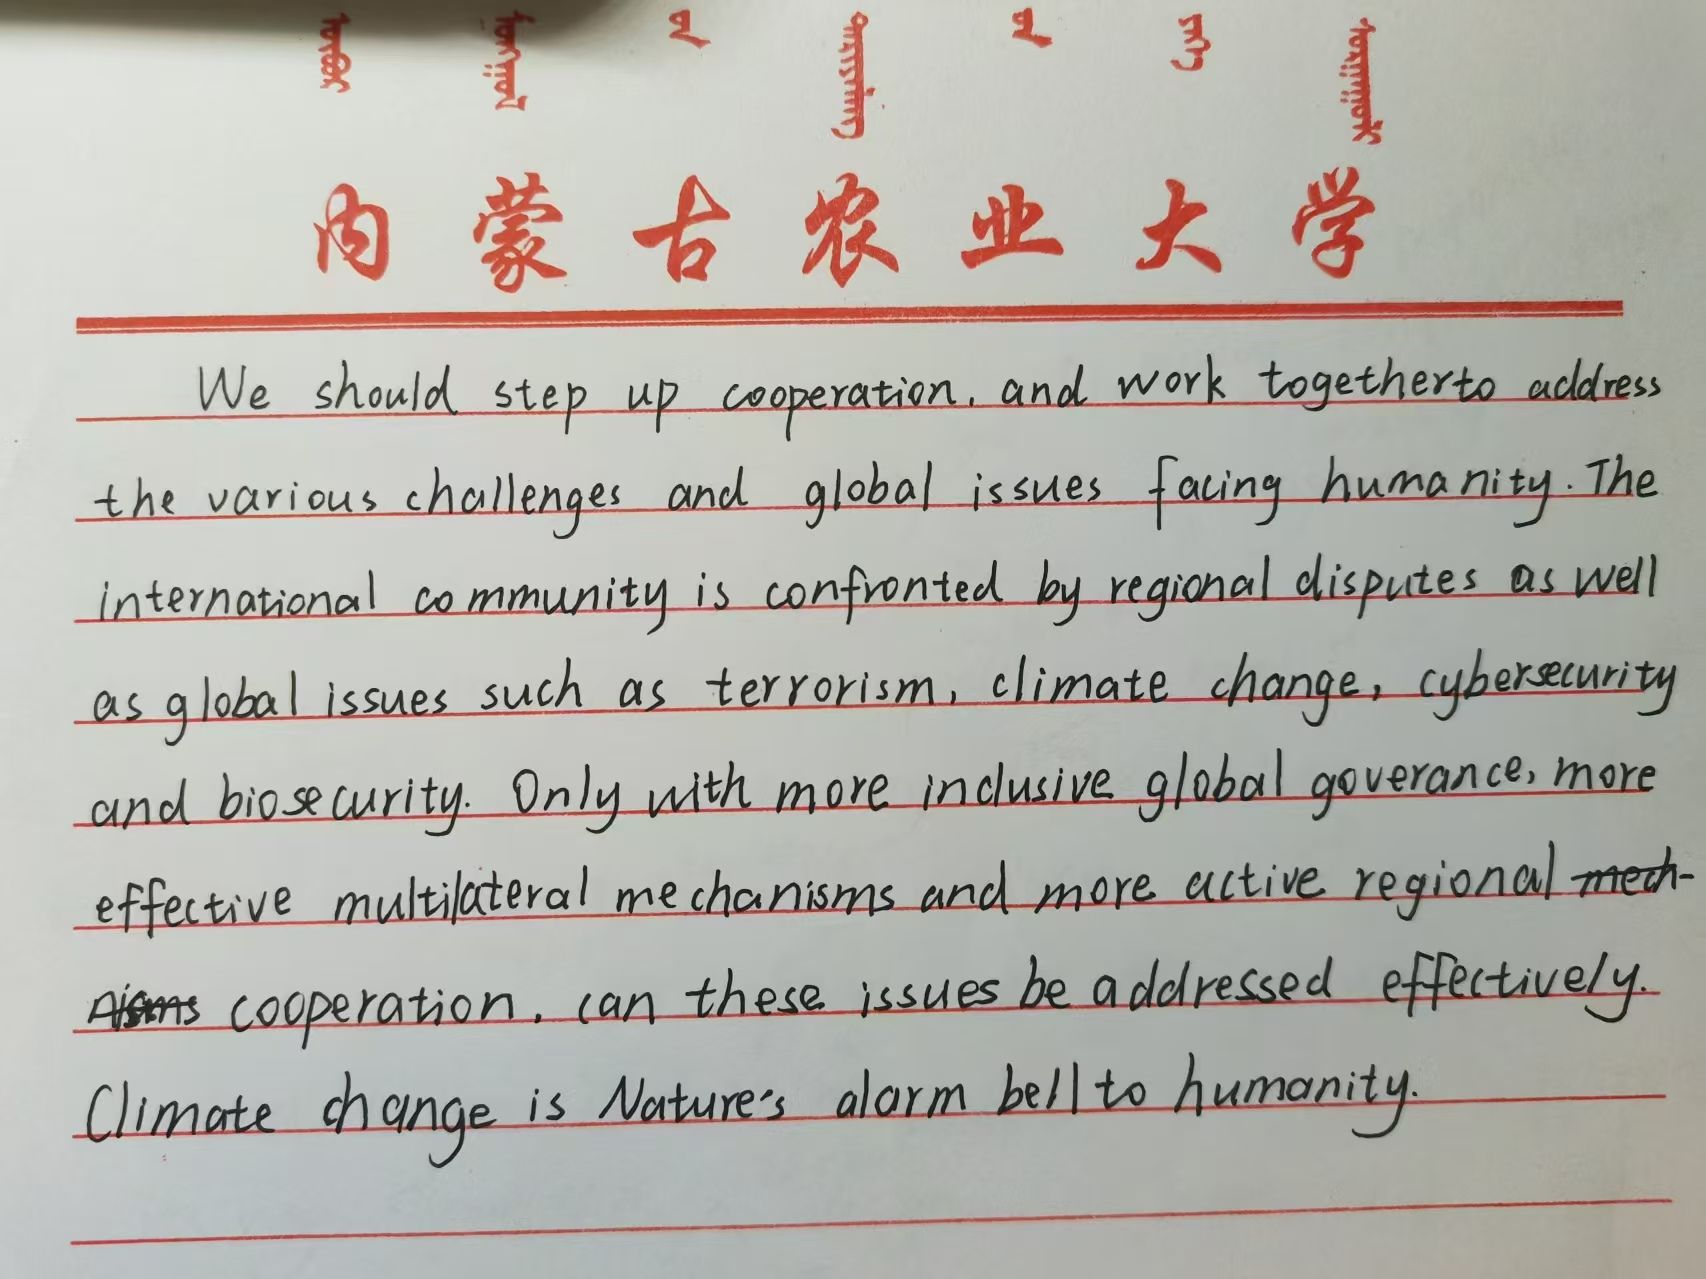 内蒙古农业大学
We should step up cooperation. and work togetherto address
the various challenges and global issues facing humanity. The
international community is confronted by regional disputes as well
as global issues such as terrorism, climate change, cybersecurity
and biosecurity. Only with more inclusive global goverance, more
effective multilateral mechanisms and more active regional mech-
nisms cooperation, can these issues be addressed effectively.
Climate change is Nature's alarm bell to humanity.